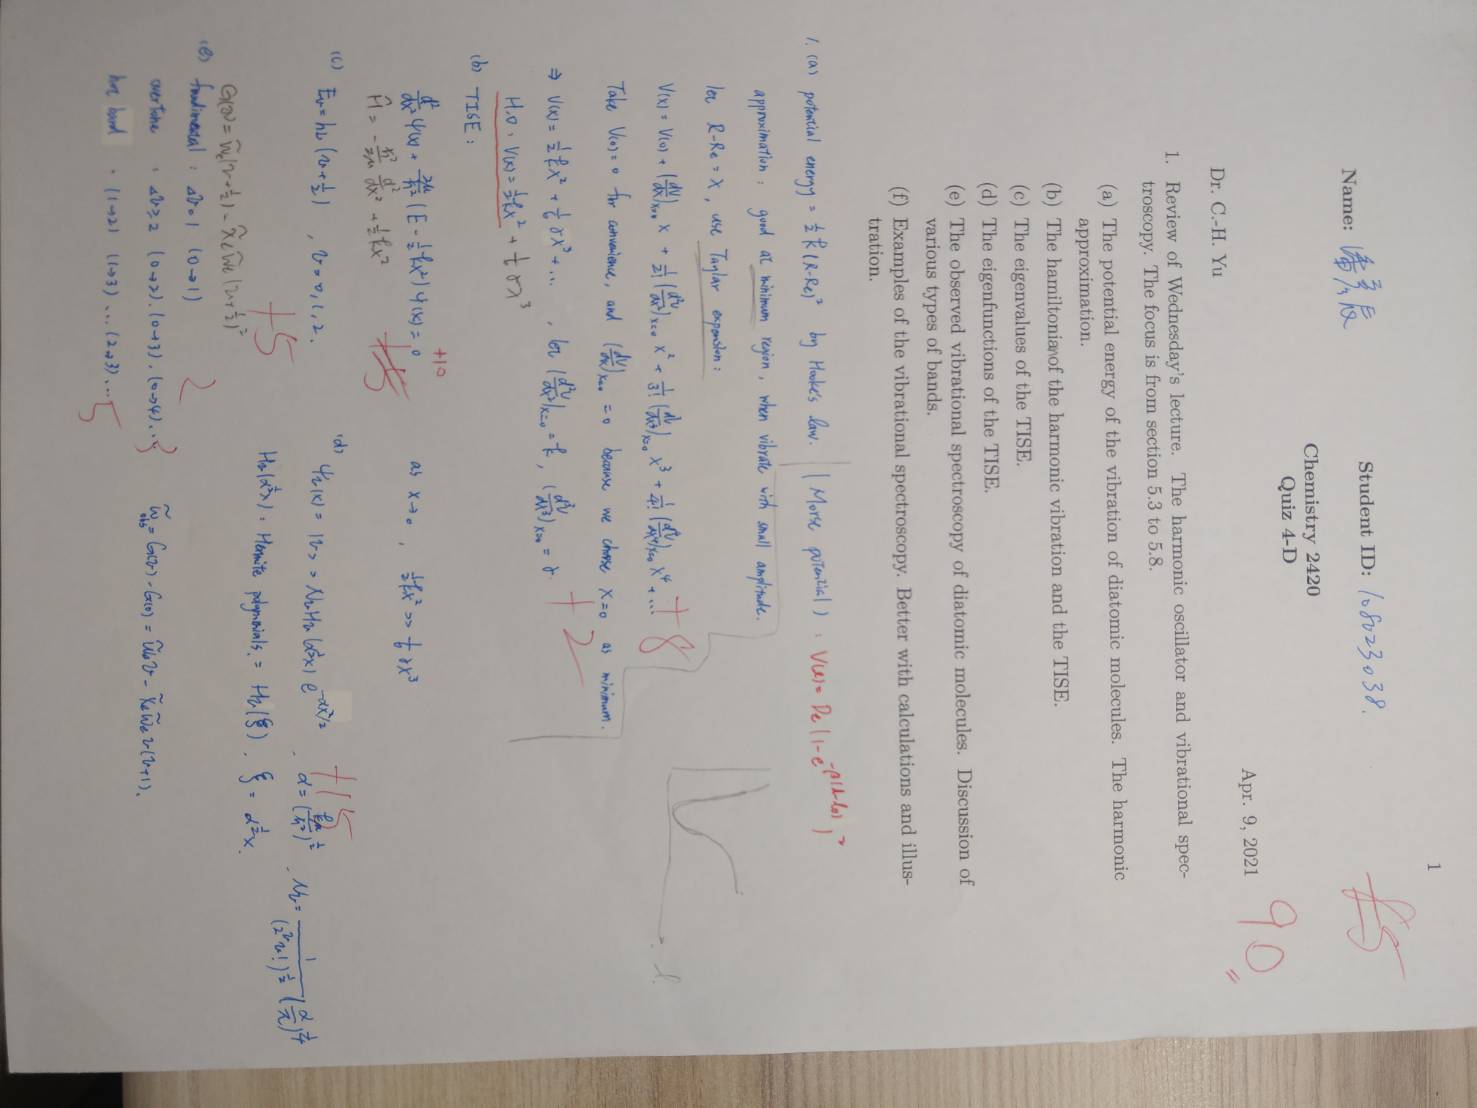 1
Name: 潘彥廷
Student ID: 108023038.
Chemistry 2420
Quiz 4-D
Dr. C.-H. Yu
Apr. 9, 2021
85
90
1. Review of Wednesday's lecture. The harmonic oscillator and vibrational spec-
troscopy. The focus is from section 5.3 to 5.8.
(a) The potential energy of the vibration of diatomic molecules. The harmonic
approximation.
(b) The hamiltonian of the harmonic vibration and the TISE.
(c) The eigenvalues of the TISE.
(d) The eigenfunctions of the TISE.
(e) The observed vibrational spectroscopy of diatomic molecules. Discussion of
various types of bands.
(f) Examples of the vibrational spectroscopy. Better with calculations and illus-
tration.
1. (a) potential energy = ½k(R-Re)² by Hooke's law. (Morse potential) : V(x) = De(1-e^-β(l-l0))²
approximation : good at minimum region, when vibrate with small amplitude.
let R-Re = x, use Taylor expansion :
V(x) = V(0) + (dV/dx)x=0 x + 1/2! (d²V/dx²)x=0 x² + 1/3! (d³V/dx³)x=0 x³ + 1/4! (d⁴V/dx⁴)x=0 x⁴ + ...
+8
Take V(0) = 0 for convenience, and (dV/dx)x=0 = 0 because we choose x=0 as minimum.
⇒ V(x) = ½kx² + 1/6 γx³ + ... , let (d²V/dx²)x=0 = k, (d³V/dx³)x=0 = γ.
+2
H.O : V(x) = ½kx² + 1/6 γx³
(b) TISE :
d²/dx² ψ(x) + 2μ/ħ² (E - ½kx²) ψ(x) = 0
+10
as x→0, ½kx² >> 1/6 γx³
Ĥ = - ħ²/2μ d²/dx² + ½kx²
+15
(c) Ev = hν(v+½) , v = 0, 1, 2.
+5
(d) ψv(x) = |v> = NvHv(α^½x) e^-αx²/2 , α = (kμ/ħ²)^½ , Nv = 1/(2^v v!)^½ (α/π)^¼
+15
Hv(α^½x) : Hermite polynomials. = Hv(ξ), ξ = α^½x.
G(v) = ω̃e(v+½) - x̃eω̃e(v+½)²
(e) fundimental : Δv = 1 (0→1)
overtone : Δv ≥ 2 (0→2), (0→3), (0→4)...
ω̃obs = G(v) - G(0) = ω̃ev - x̃eω̃ev(v+1).
hot band : (1→2) (1→3) ... (2→3) ...
5